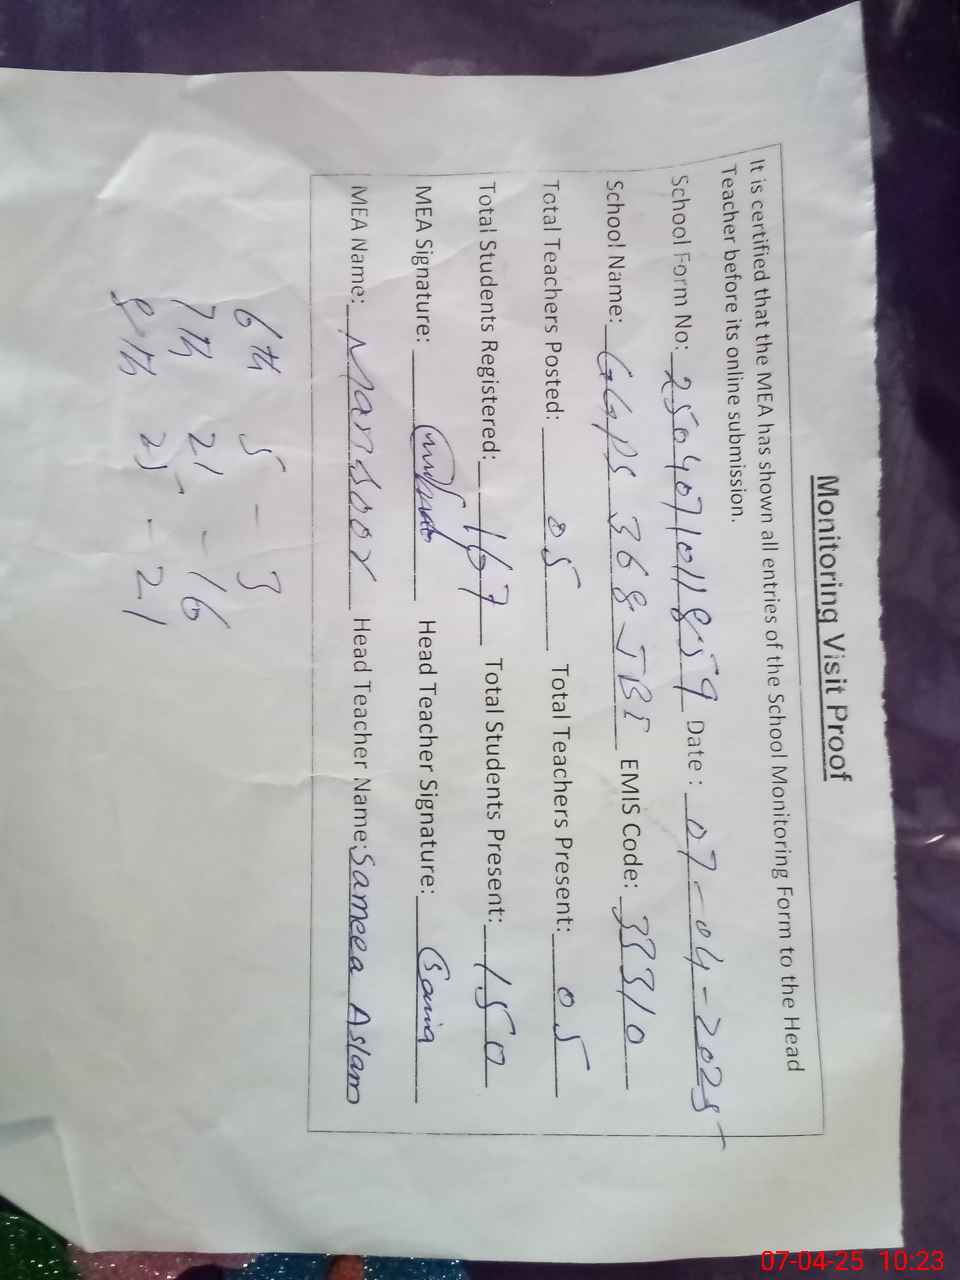 Monitoring Visit Proof
It is certified that the MEA has shown all entries of the School Monitoring Form to the Head
Teacher before its online submission.
School Form No: 25040710118559 Date : 07-04-2025
School Name: GGPS 368 JB EMIS Code: 3310
Total Teachers Posted: 05 Total Teachers Present: 05
Total Students Registered: 167 Total Students Present: 150
MEA Signature: Head Teacher Signature:
MEA Name: Mansoor Head Teacher Name: Sameea Aslam
6th 5 - 3
7th 21 - 16
8th - 21
07-04-25 10:23